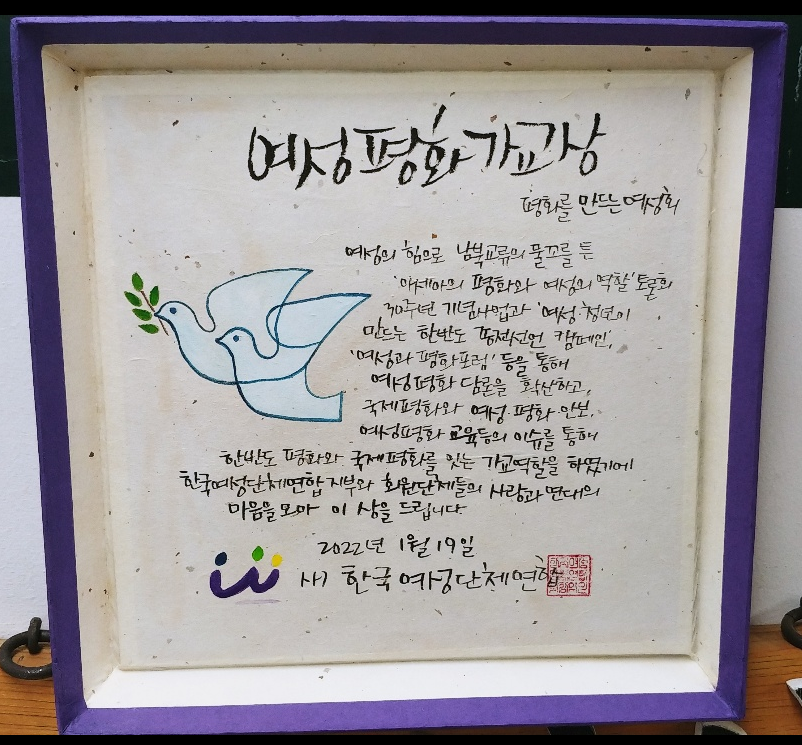 여성평화가교상
평화를 만드는 여성회
여성의 힘으로 남북교류의 물꼬를 튼
'아세아의 평화와 여성의 역할' 토론회
30주년 기념사업과 '여성·청년이
만드는 한반도 평화선언 캠페인',
'여성과 평화포럼' 등을 통해
여성평화 담론을 확산하고,
국제평화와 여성·평화·안보,
여성평화 교육등의 이슈를 통해
한반도 평화와 국제평화를 잇는 가교역할을 하였기에
한국여성단체연합 지부와 회원단체들의 사랑과 연대의
마음을 모아 이 상을 드립니다
2022년 1월 19일
한국여성단체연합